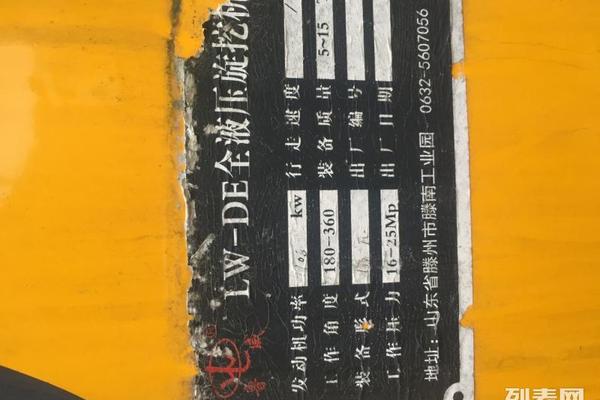 LW-DE全液压旋挖机
发动机功率 kw 行走速度
工作角度 180-360 装备质量 5~15
装备形式 出厂编号
工作压力 16-25Mp 出厂日期
地址:山东省滕州市滕南工业园 0632-5607056
列表网